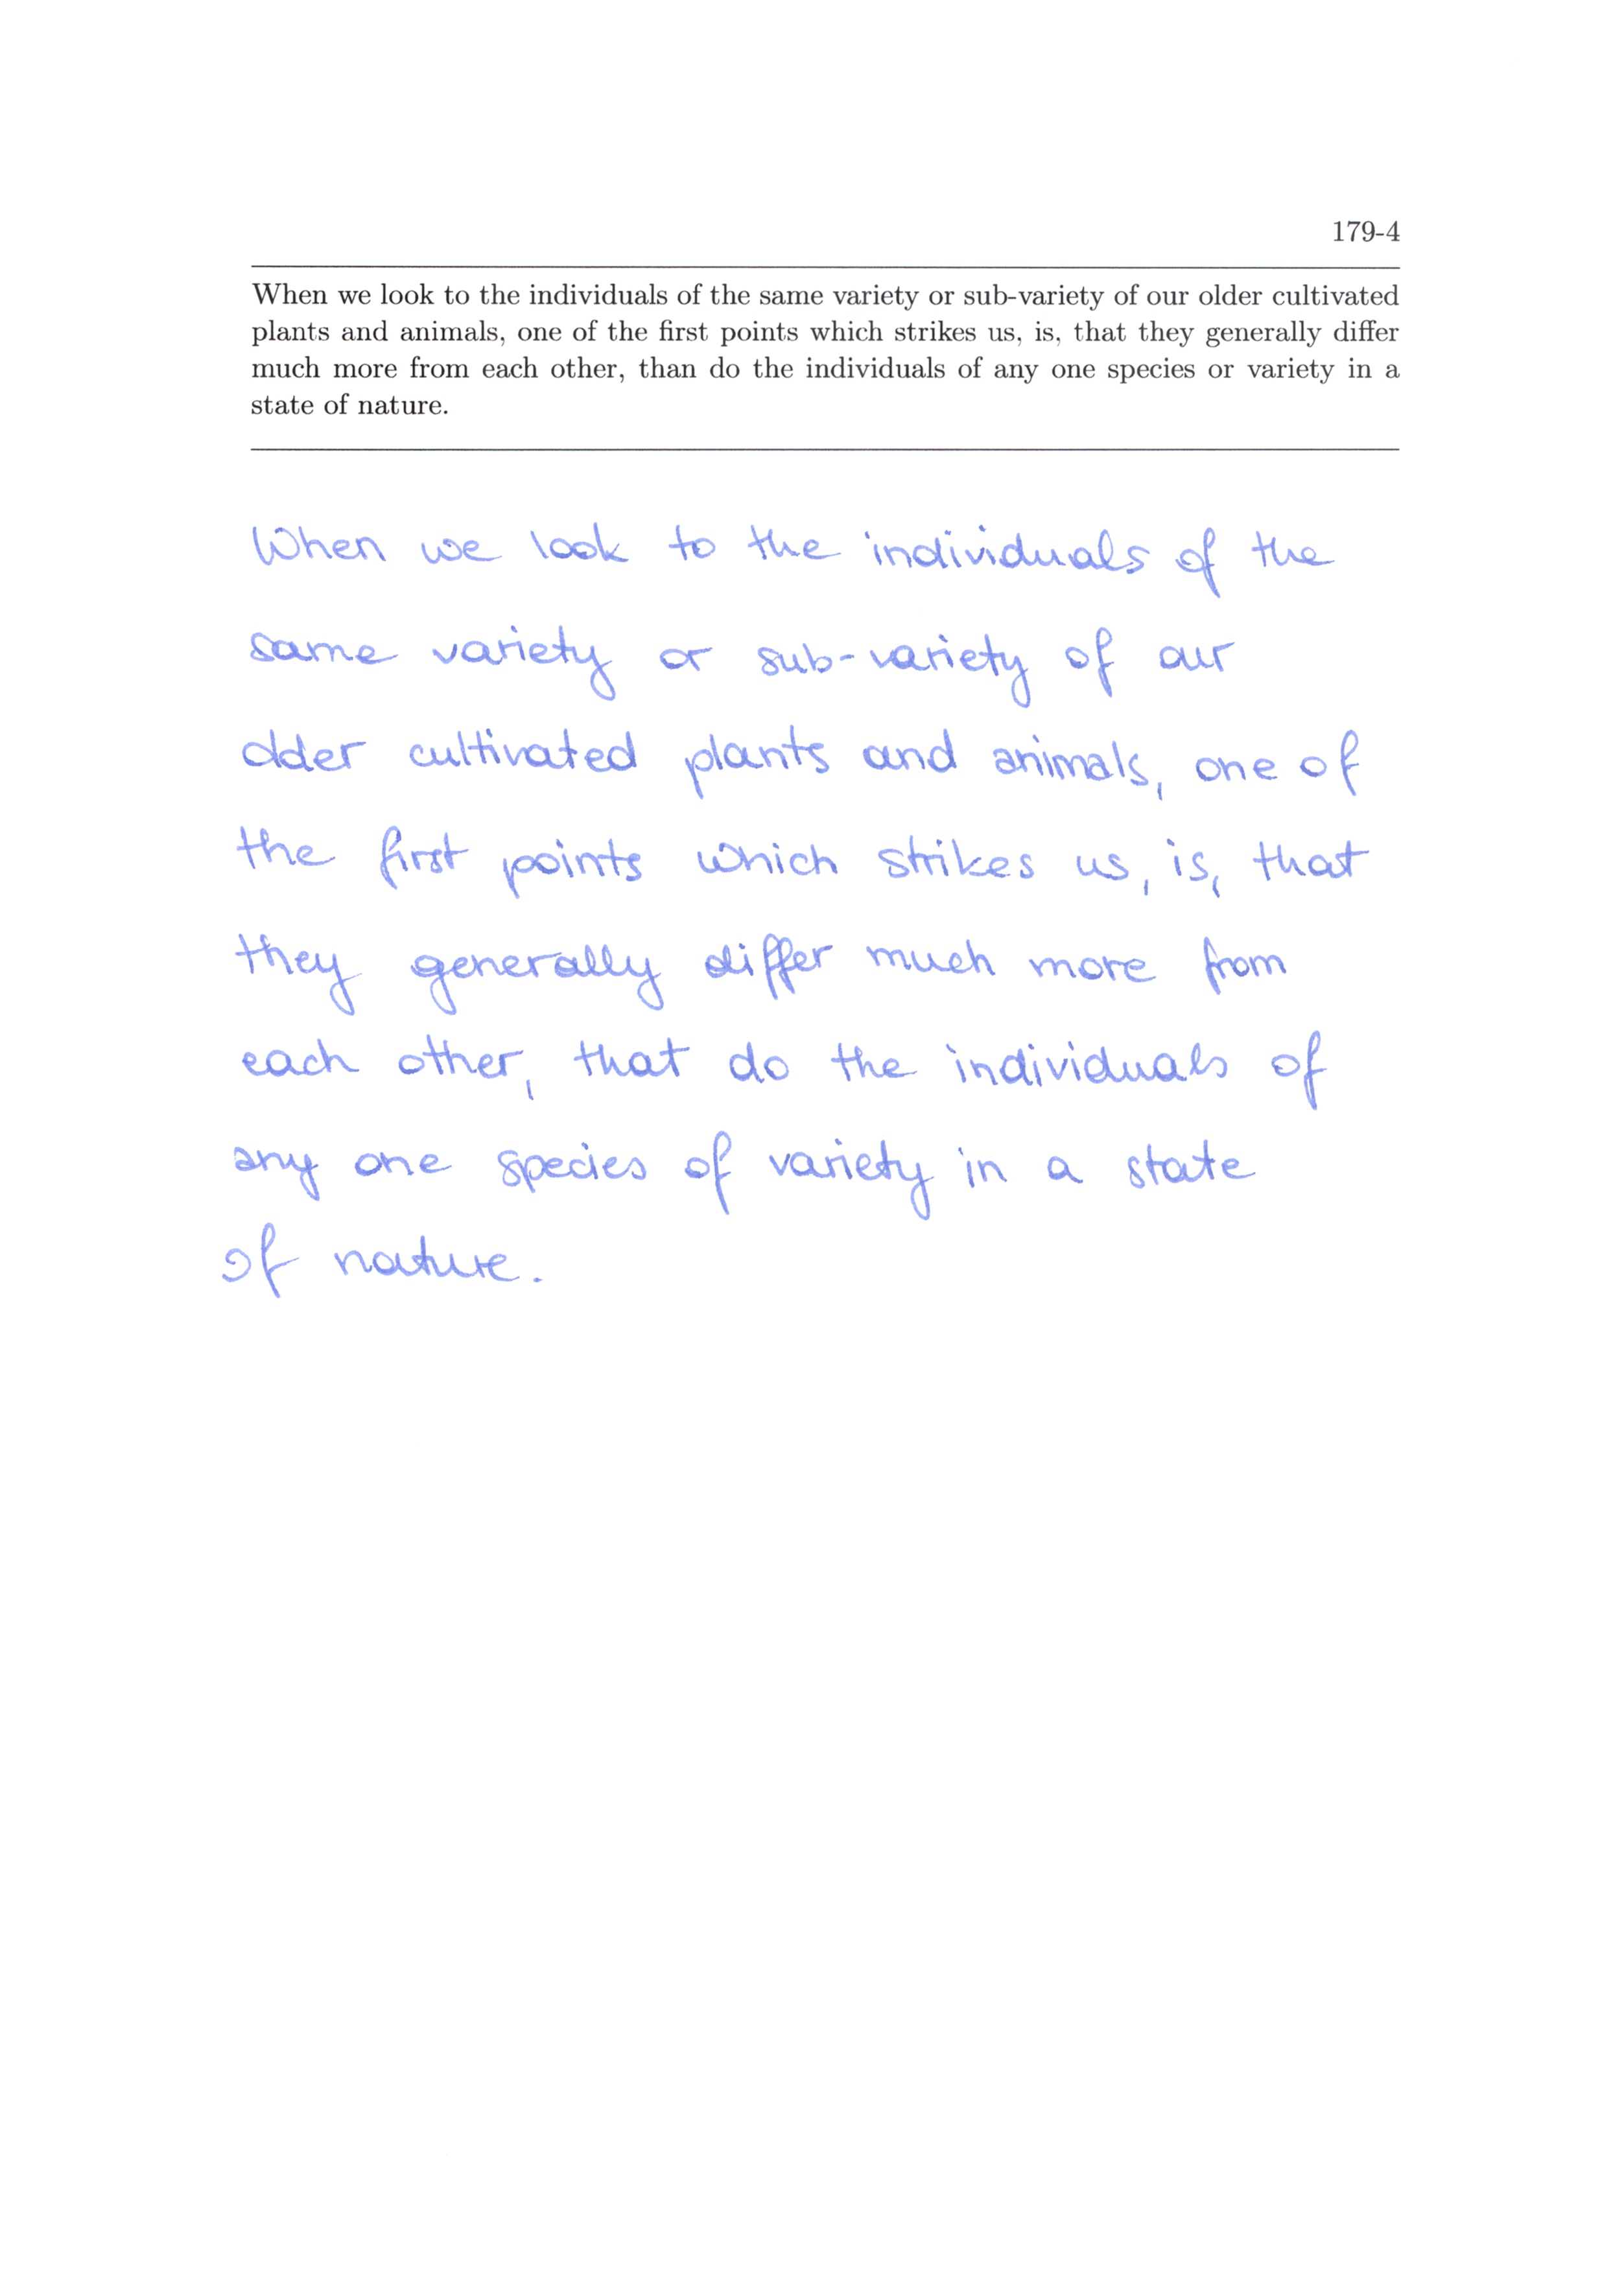 179-4
When we look to the individuals of the same variety or sub-variety of our older cultivated
plants and animals, one of the first points which strikes us, is, that they generally differ
much more from each other, than do the individuals of any one species or variety in a
state of nature.
When we look to the individuals of the
same variety or sub-variety of our
older cultivated plants and animals, one of
the first points which strikes us, is, that
they generally differ much more from
each other, that do the individuals of
any one species of variety in a state
of nature.